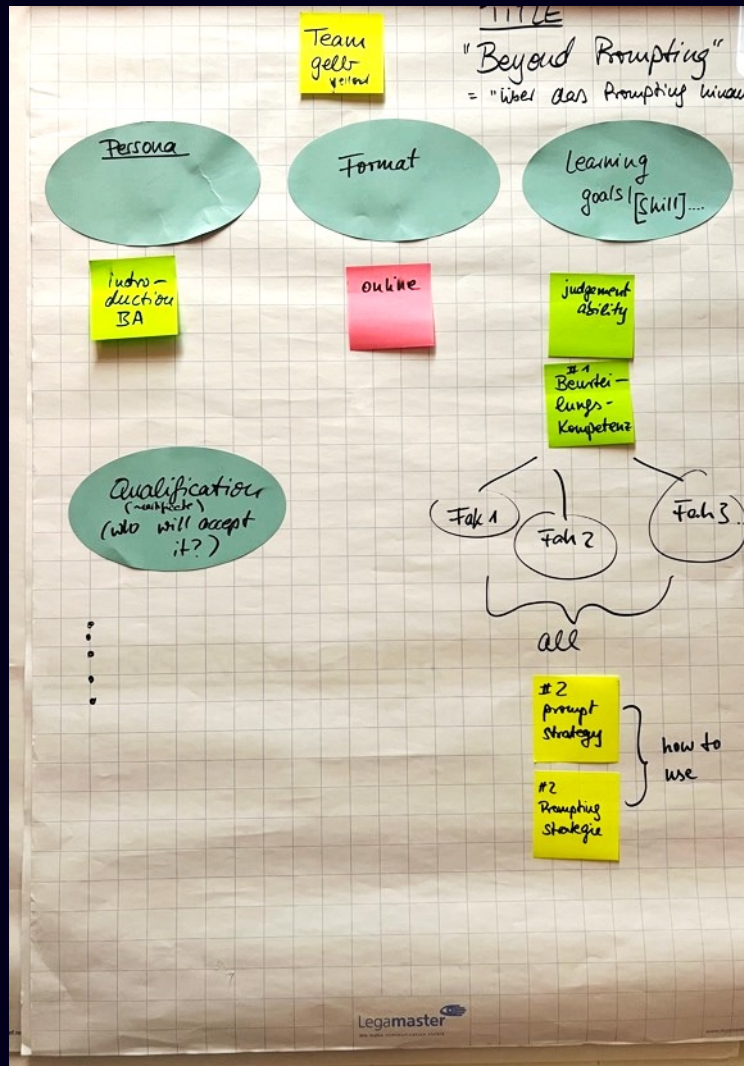 Team
gelb
yellow
TITLE
"Beyond Prompting"
= "über das Prompting hinaus
Persona
Format
Learning
goals! [Skill]....
intro-
duction
BA
online
judgement
ability
#1
Beurtei-
lungs-
Kompetenz
Qualification
(who will accept
it?)
Fak 1
Fak 2
Fak 3...
all
#2
prompt
strategy
#2
Prompting
strategie
how to
use
Legamaster